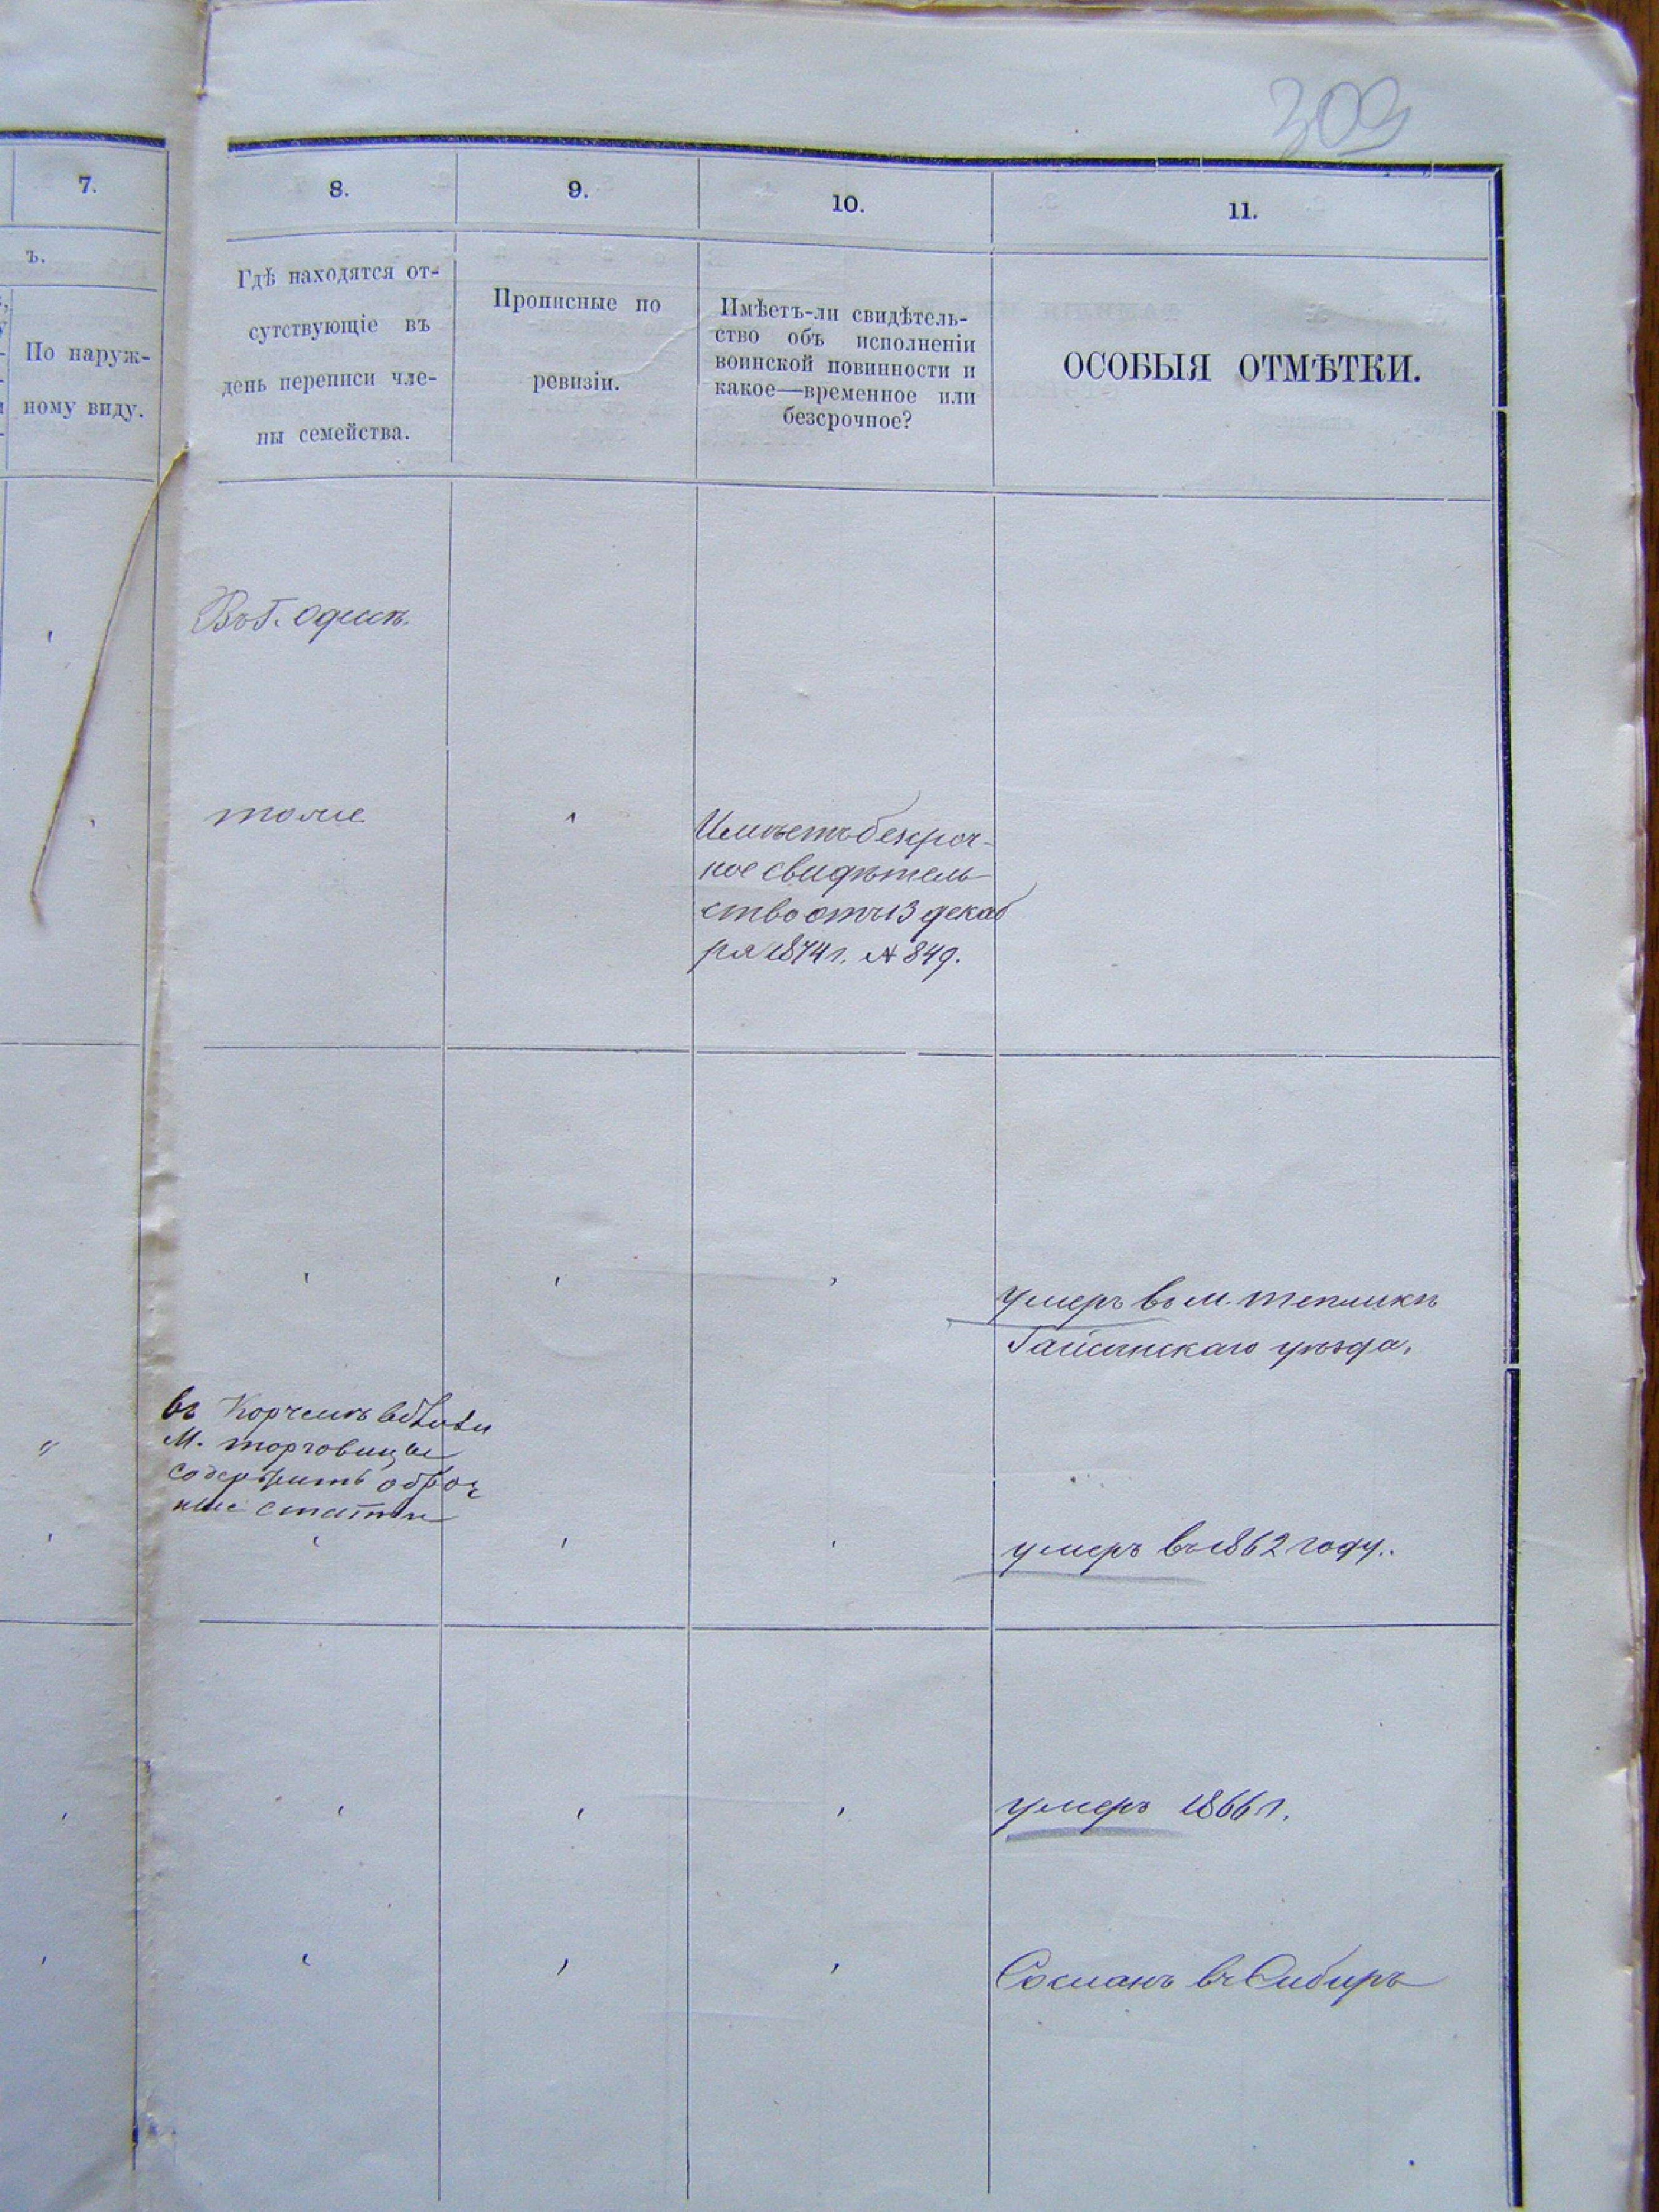 309
7.
8.
9.
10.
11.
ъ.
По наруж-
ному виду.
Гдѣ находятся от-
сутствующіе въ
день переписи чле-
ны семейства.
Прописные по
ревизіи.
Имѣетъ-ли свидѣтель-
ство объ исполненіи
воинской повинности и
какое—временное или
безсрочное?
ОСОБЫЯ ОТМѢТКИ.
Въ Г.
тоже
Имѣетъ безсроч-
ное свидѣтель
ство отъ 13 декаб
ря 1874 г. № 849.
умеръ въ м. Тепликѣ
Гайсинскаго уѣзда.
въ Корчемѣ вблизи
М. торговицы
содержитъ оброч
ные статьи
умеръ въ 1862 году.
умеръ 1866 г.
Сосланъ въ Сибирь